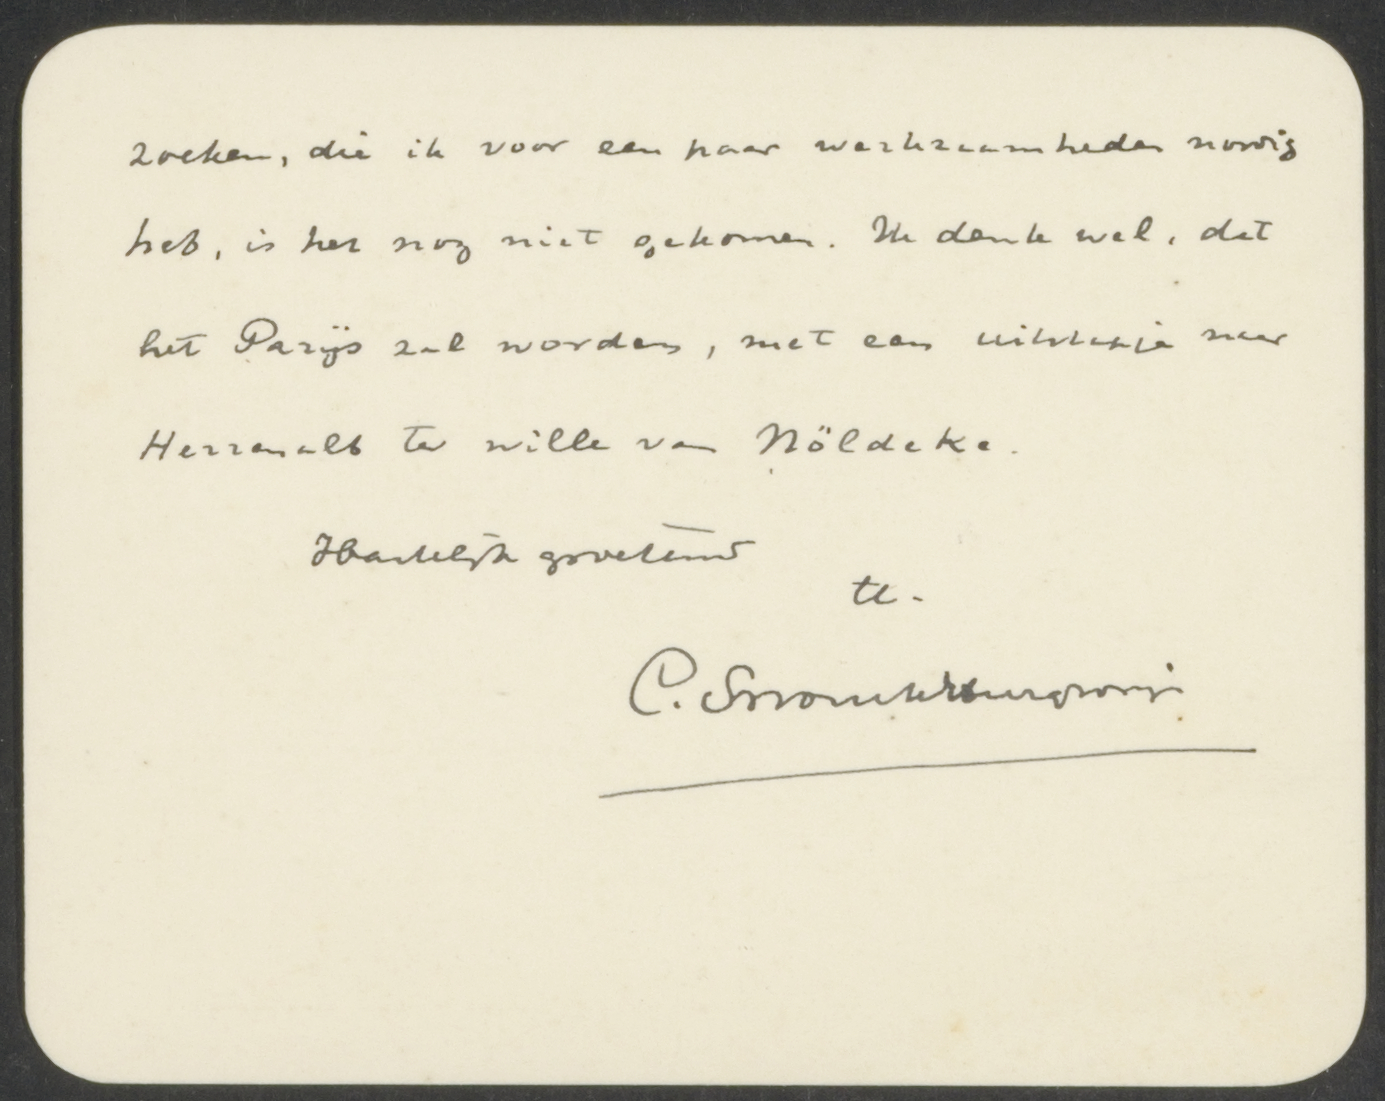 zoeken, die ik voor een paar werkzaamheden noodig
heb, is het nog niet gekomen. Ik denk wel, dat
het Parijs zal worden, met een uitstapje naar
Herrenalb ter wille van Nöldeke.
Hartelijk groetend
tt.
C. Snouck Hurgronje